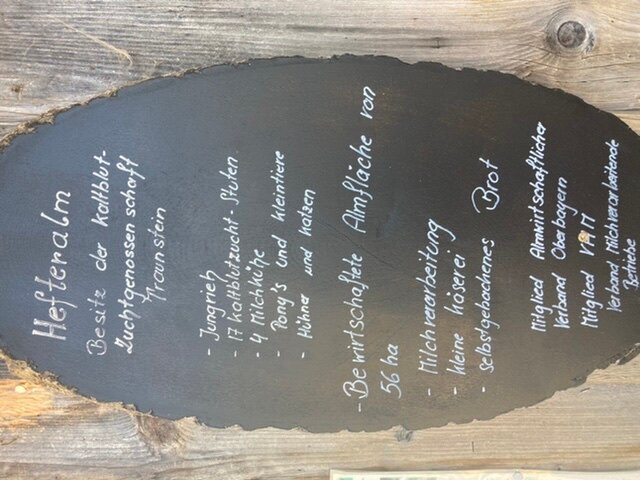 Hefteralm
Besitz der Kaltblut-
Zuchtgenossenschaft
Traunstein
- Jungvieh
- 17 Kaltblutzucht-Stuten
- 4 Milchkühe
- Pony's und Kleintiere
- Hühner und Katzen
- Bewirtschaftete Almfläche von
56 ha
- Milchverarbeitung
- kleine Käserei
- Selbstgebackenes Brot
Mitglied Almwirtschaftlicher
Verband Oberbayern
Mitglied
Verband Milchverarbeitende
Betriebe